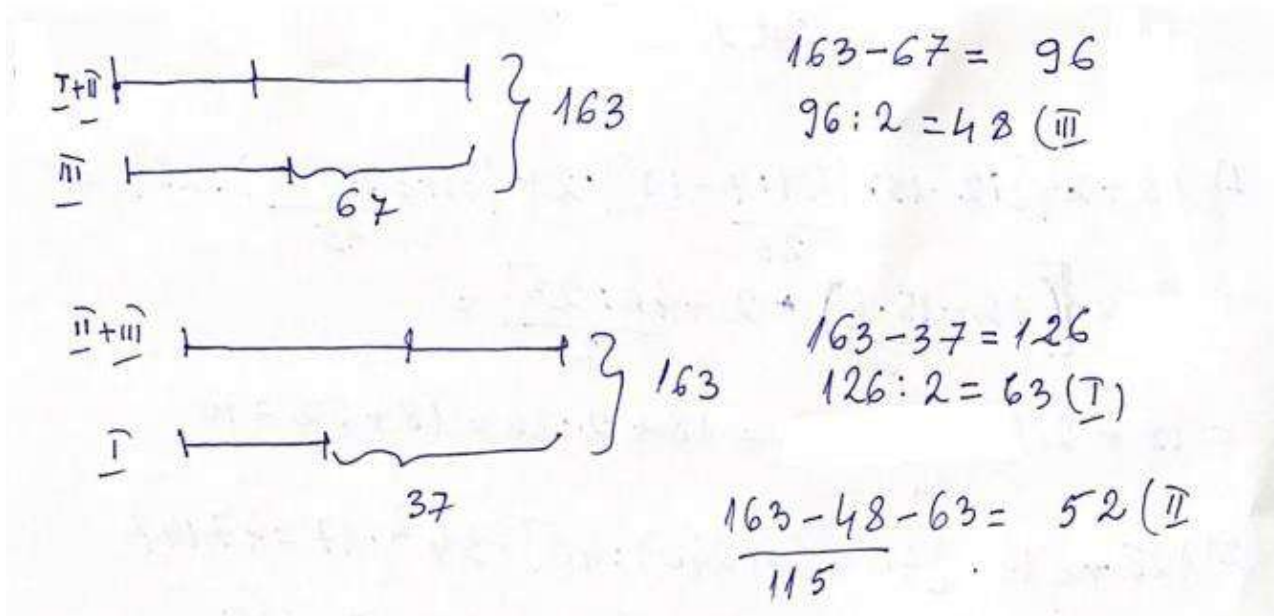 I+II 163
III
67
163-67= 96
96:2=48 (III
II+III 163
I
37
163-37=126
126:2=63 (I)
163-48-63= 52 (II
115